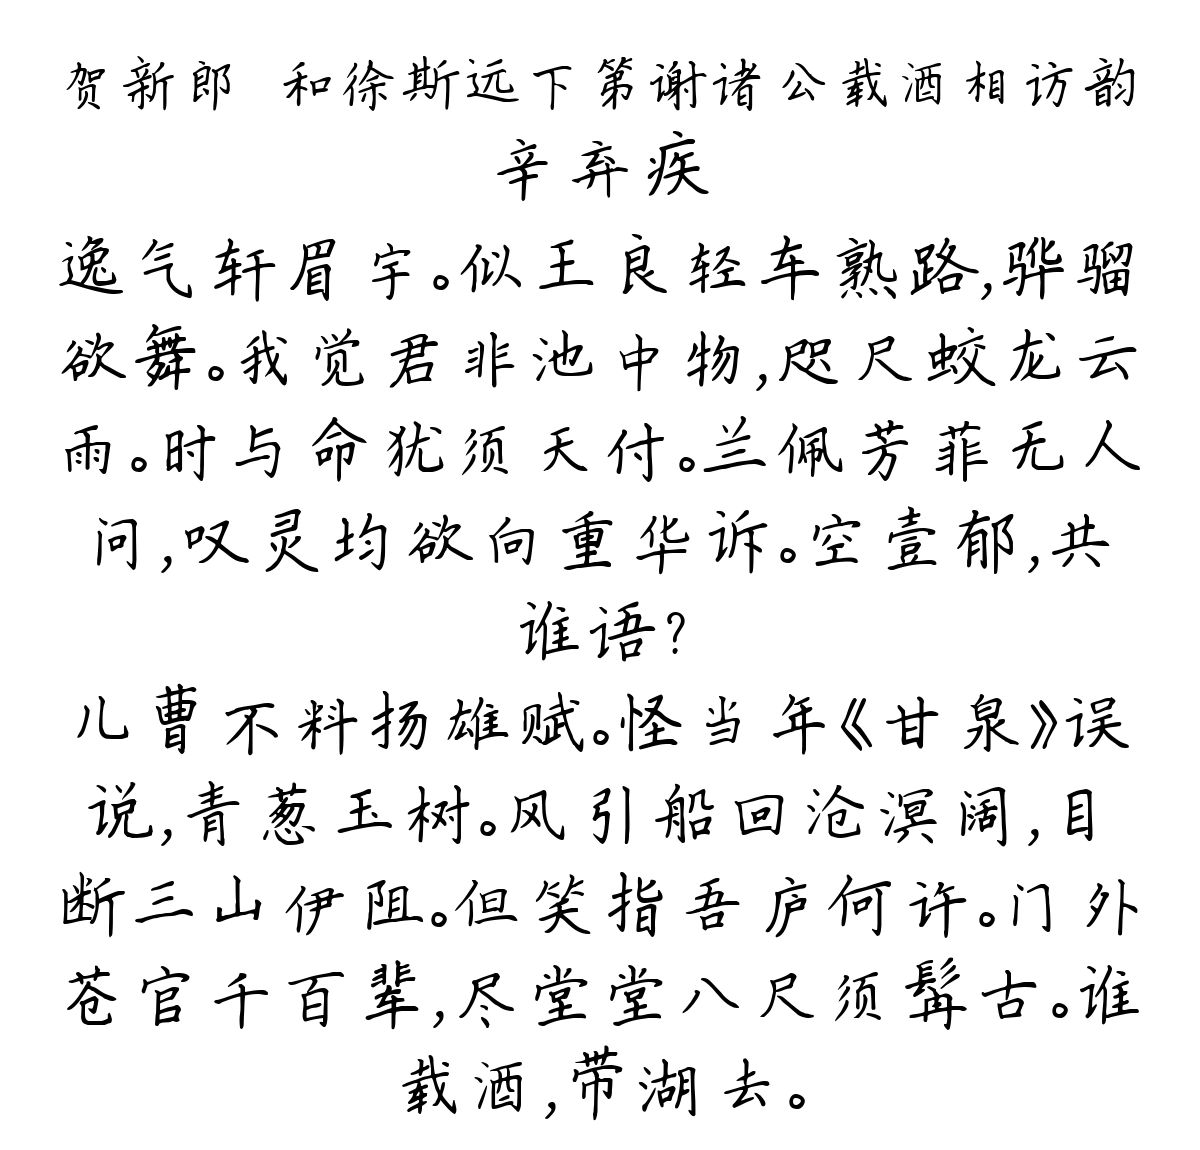 贺新郎 和徐斯远下第谢诸公载酒相访韵
辛弃疾
逸气轩眉宇。似王良轻车熟路,骅骝
欲舞。我觉君非池中物,咫尺蛟龙云
雨。时与命犹须天付。兰佩芳菲无人
问,叹灵均欲向重华诉。空壹郁,共
谁语?
儿曹不料扬雄赋。怪当年《甘泉》误
说,青葱玉树。风引船回沧溟阔,目
断三山伊阻。但笑指吾庐何许。门外
苍官千百辈,尽堂堂八尺须髯古。谁
载酒,带湖去。